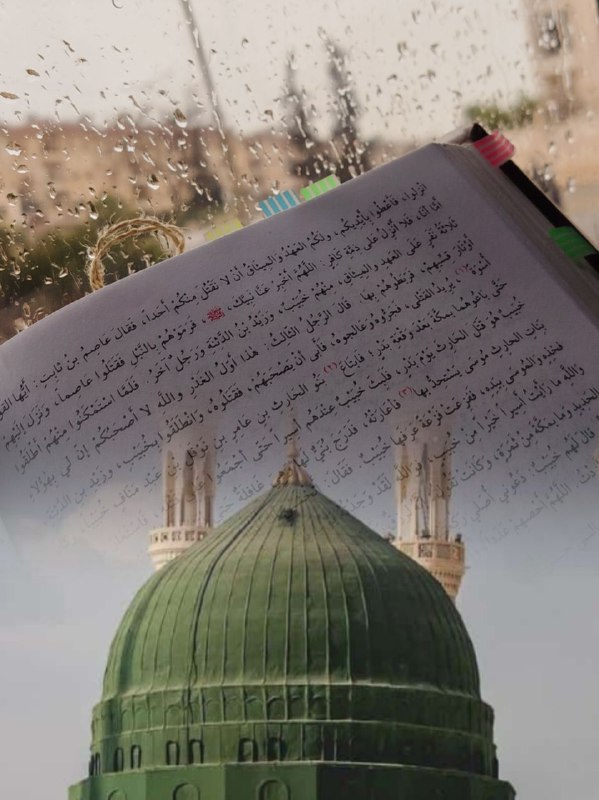 انْزِلُوا، فَأَعْطُوا بِأَيْدِيكُمْ، وَلَكُمُ العَهْدُ وَالمِيثَاقُ أَنْ لا نَقْتُلَ مِنْكُمْ أَحَداً، فَقَالَ عَاصِمُ بْنُ ثَابِتٍ: أَيُّهَا القَو
أَمَّا أَنَا، فَلا أَنْزِلُ عَلَى ذِمَّةِ كَافِرٍ: اللَّهُمَّ أَخْبِرْ عَنَّا نَبِيَّكَ ﷺ، فَرَمَوْهُمْ بِالنَّبْلِ فَقَتَلُوا عَاصِماً، وَنَزَلَ إِلَيْهِمْ
ثَلاثَةُ نَفَرٍ عَلَى العَهْدِ وَالمِيثَاقِ، مِنْهُمْ خُبَيْبٌ، وَزَيْدُ بْنُ الدَّثِنَةِ وَرَجُلٌ آخَرُ. فَلَمَّا اسْتَمْكَنُوا مِنْهُمْ أَطْلَقُوا
أَوْتَارَ قِسِيِّهِمْ، فَرَبَطُوهُمْ بِهَا. قَالَ الرَّجُلُ الثَّالِثُ: هَذَا أَوَّلُ الغَدْرِ وَاللَّهِ لا أَصْحَبُكُمْ إِنَّ لِي بِهَؤُلاءِ
أُسْوَةً(١)، يُرِيدُ القَتْلَى، فَجَرُّوهُ وَعَالَجُوهُ، فَأَبَى أَنْ يَصْحَبَهُمْ، فَقَتَلُوهُ، وَانْطَلَقُوا بِخُبَيْبٍ، وَزَيْدِ بْنِ الدَّثِنَةِ
حَتَّى بَاعُوهُمَا بِمَكَّةَ بَعْدَ وَقْعَةِ بَدْرٍ؛ فَابْتَاعَ(٢) بَنُو الحَارِثِ بْنِ عَامِرِ بْنِ نَوْفَلِ بْنِ عَبْدِ مَنَافٍ خُبَيْباً
خُبَيْبٌ هُوَ قَتَلَ الحَارِثَ يَوْمَ بَدْرٍ، فَلَبِثَ خُبَيْبٌ عِنْدَهُمْ أَسِيراً حَتَّى أَجْمَعُوا عَلَى
بَنَاتِ الحَارِثِ مُوسَى يَسْتَحِدُّ بِهَا(٣) فَأَعَارَتْهُ، فَدَرَجَ بُنَيٌّ لَهَا غَافِلَةٌ
فَخِذِهِ وَالمُوسَى بِيَدِهِ، فَفَزِعَتْ فَزْعَةً عَرَفَهَا خُبَيْبٌ. فَقَالَ:
وَاللَّهِ مَا رَأَيْتُ أَسِيراً خَيْراً مِنْ خُبَيْبٍ، فَوَاللَّهِ لَقَدْ
الحَدِيدِ وَمَا بِمَكَّةَ مِنْ ثَمَرَةٍ، وَكَانَتْ تَقُولُ
قَالَ لَهُمْ خُبَيْبٌ: دَعُونِي أُصَلِّي
اللَّهُمَّ أَحْصِهِمْ